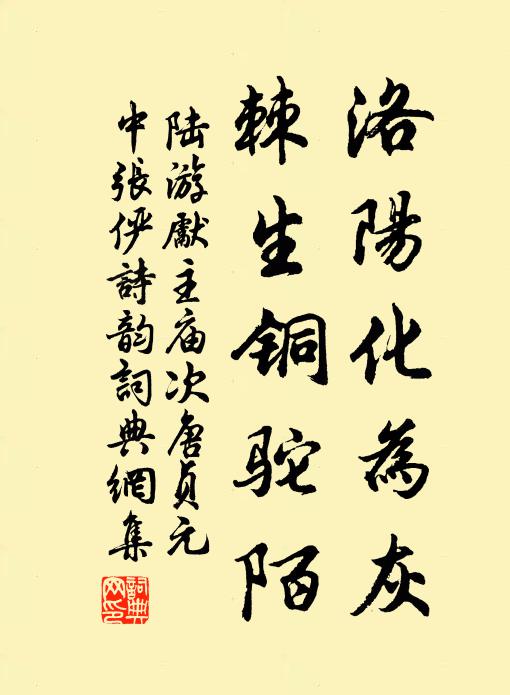 洛陽化為灰
棘生铜駝陌
陆游獻主庙次唐貞元
中張俨詩韵詞典網集